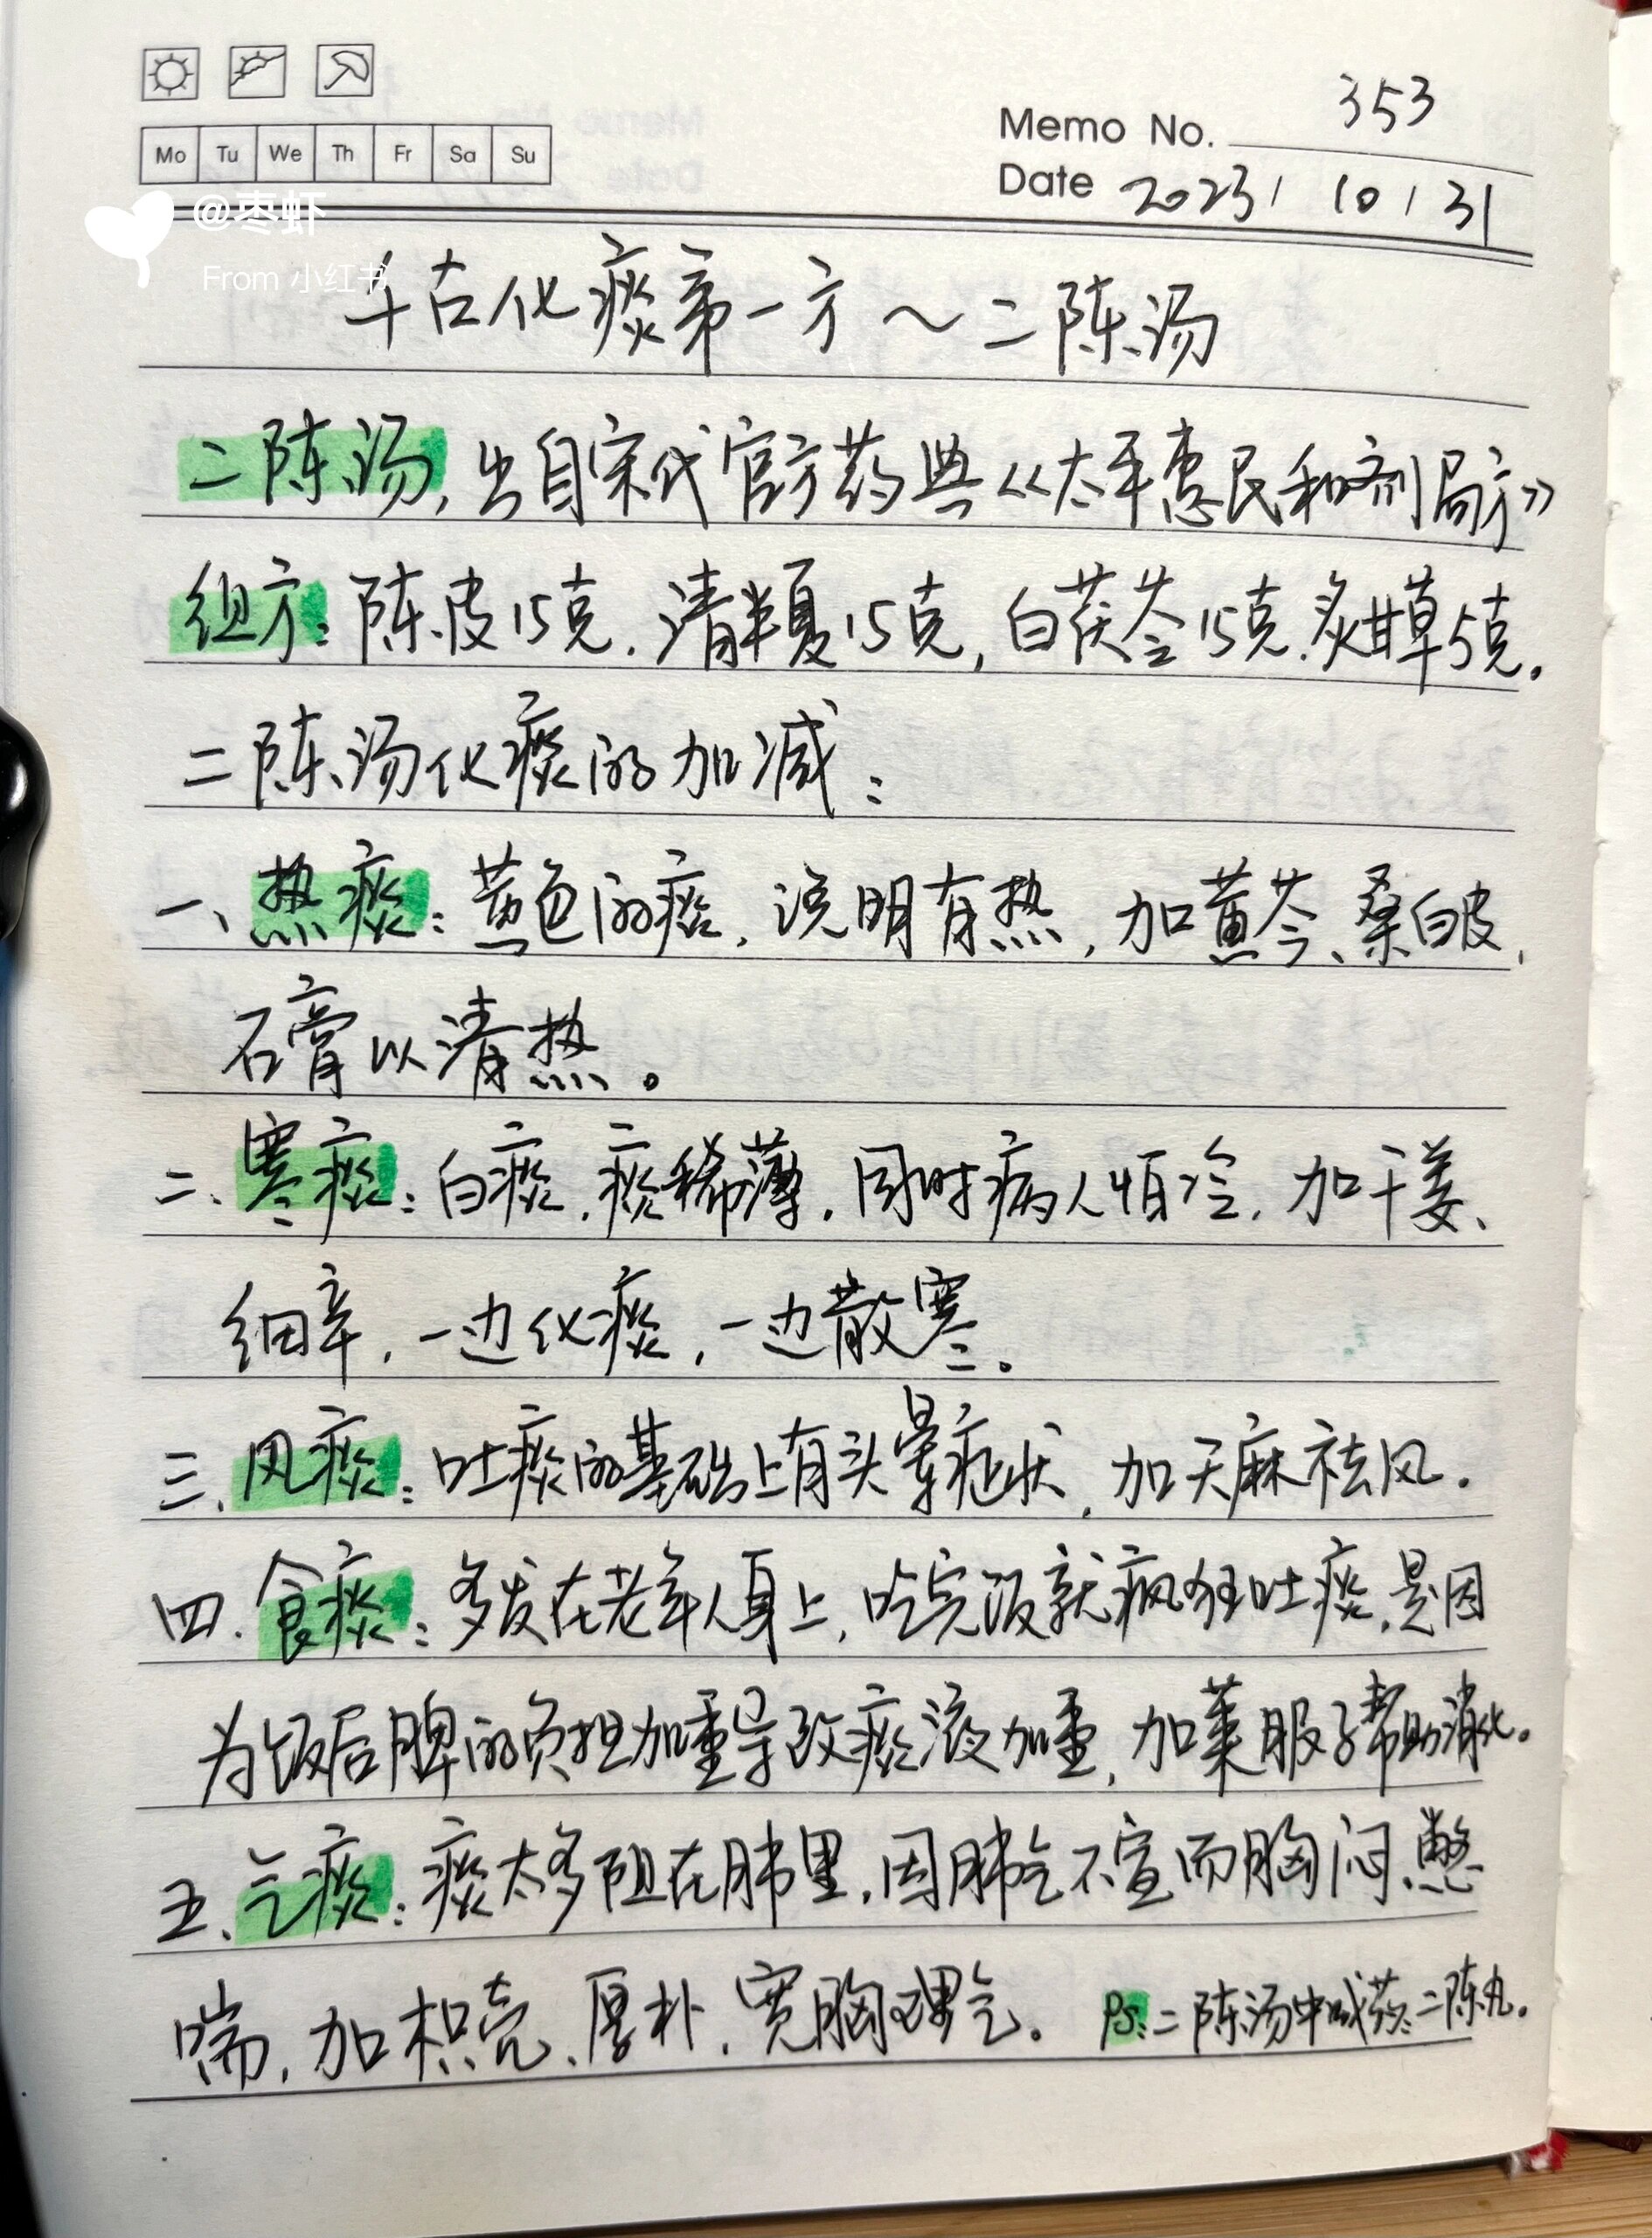 Mo Tu We Th Fr Sa Su
Memo No. 353
Date 2023/10/31
@枣虾
From 小红书
千古化痰第一方~二陈汤
二陈汤,出自宋代官方药典《太平惠民和剂局方》
组方:陈皮15克.清半夏15克,白茯苓15克.炙甘草5克。
二陈汤化痰的加减:
一、热痰:黄色的痰,说明有热,加黄芩、桑白皮,
石膏以清热。
二、寒痰:白痰,痰稀薄,同时病人怕冷,加干姜、
细辛,一边化痰,一边散寒。
三、风痰:吐痰的基础上有头晕症状,加天麻祛风.
四.食痰:多发在老年人身上,吃完饭就疯狂吐痰,是因
为饭后脾的负担加重导致痰液加重,加莱服子帮助消化。
五、气痰:痰太多阻在肺里,因肺气不宣而胸闷、憋
喘,加枳壳、厚朴,宽胸理气。 Ps:二陈汤中成药:二陈丸。